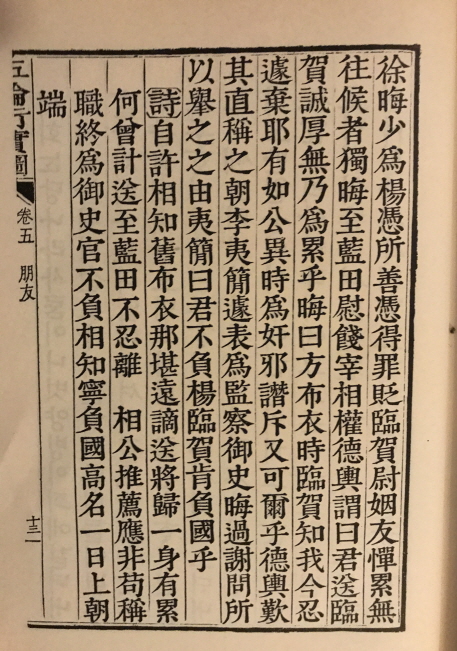 徐晦少爲楊憑所善憑得罪貶臨賀尉姻友憚累無
往候者獨晦至藍田慰餞宰相權德輿謂曰君送臨
賀誠厚無乃爲累乎晦曰方布衣時臨賀知我今忍
遽棄耶有如公異時爲奸邪譖斥又可爾乎德輿歎
其直稱之朝李夷簡遽表爲監察御史晦過謝問所
以舉之之由夷簡曰君不負楊臨賀肯負國乎
詩自許相知舊布衣那堪遠謫送將歸一身有累
何曾計送至藍田不忍離 相公推薦應非苟稱
職終爲御史官不負相知寧負國高名一日上朝
端
五倫行實圖 卷五 朋友 十三